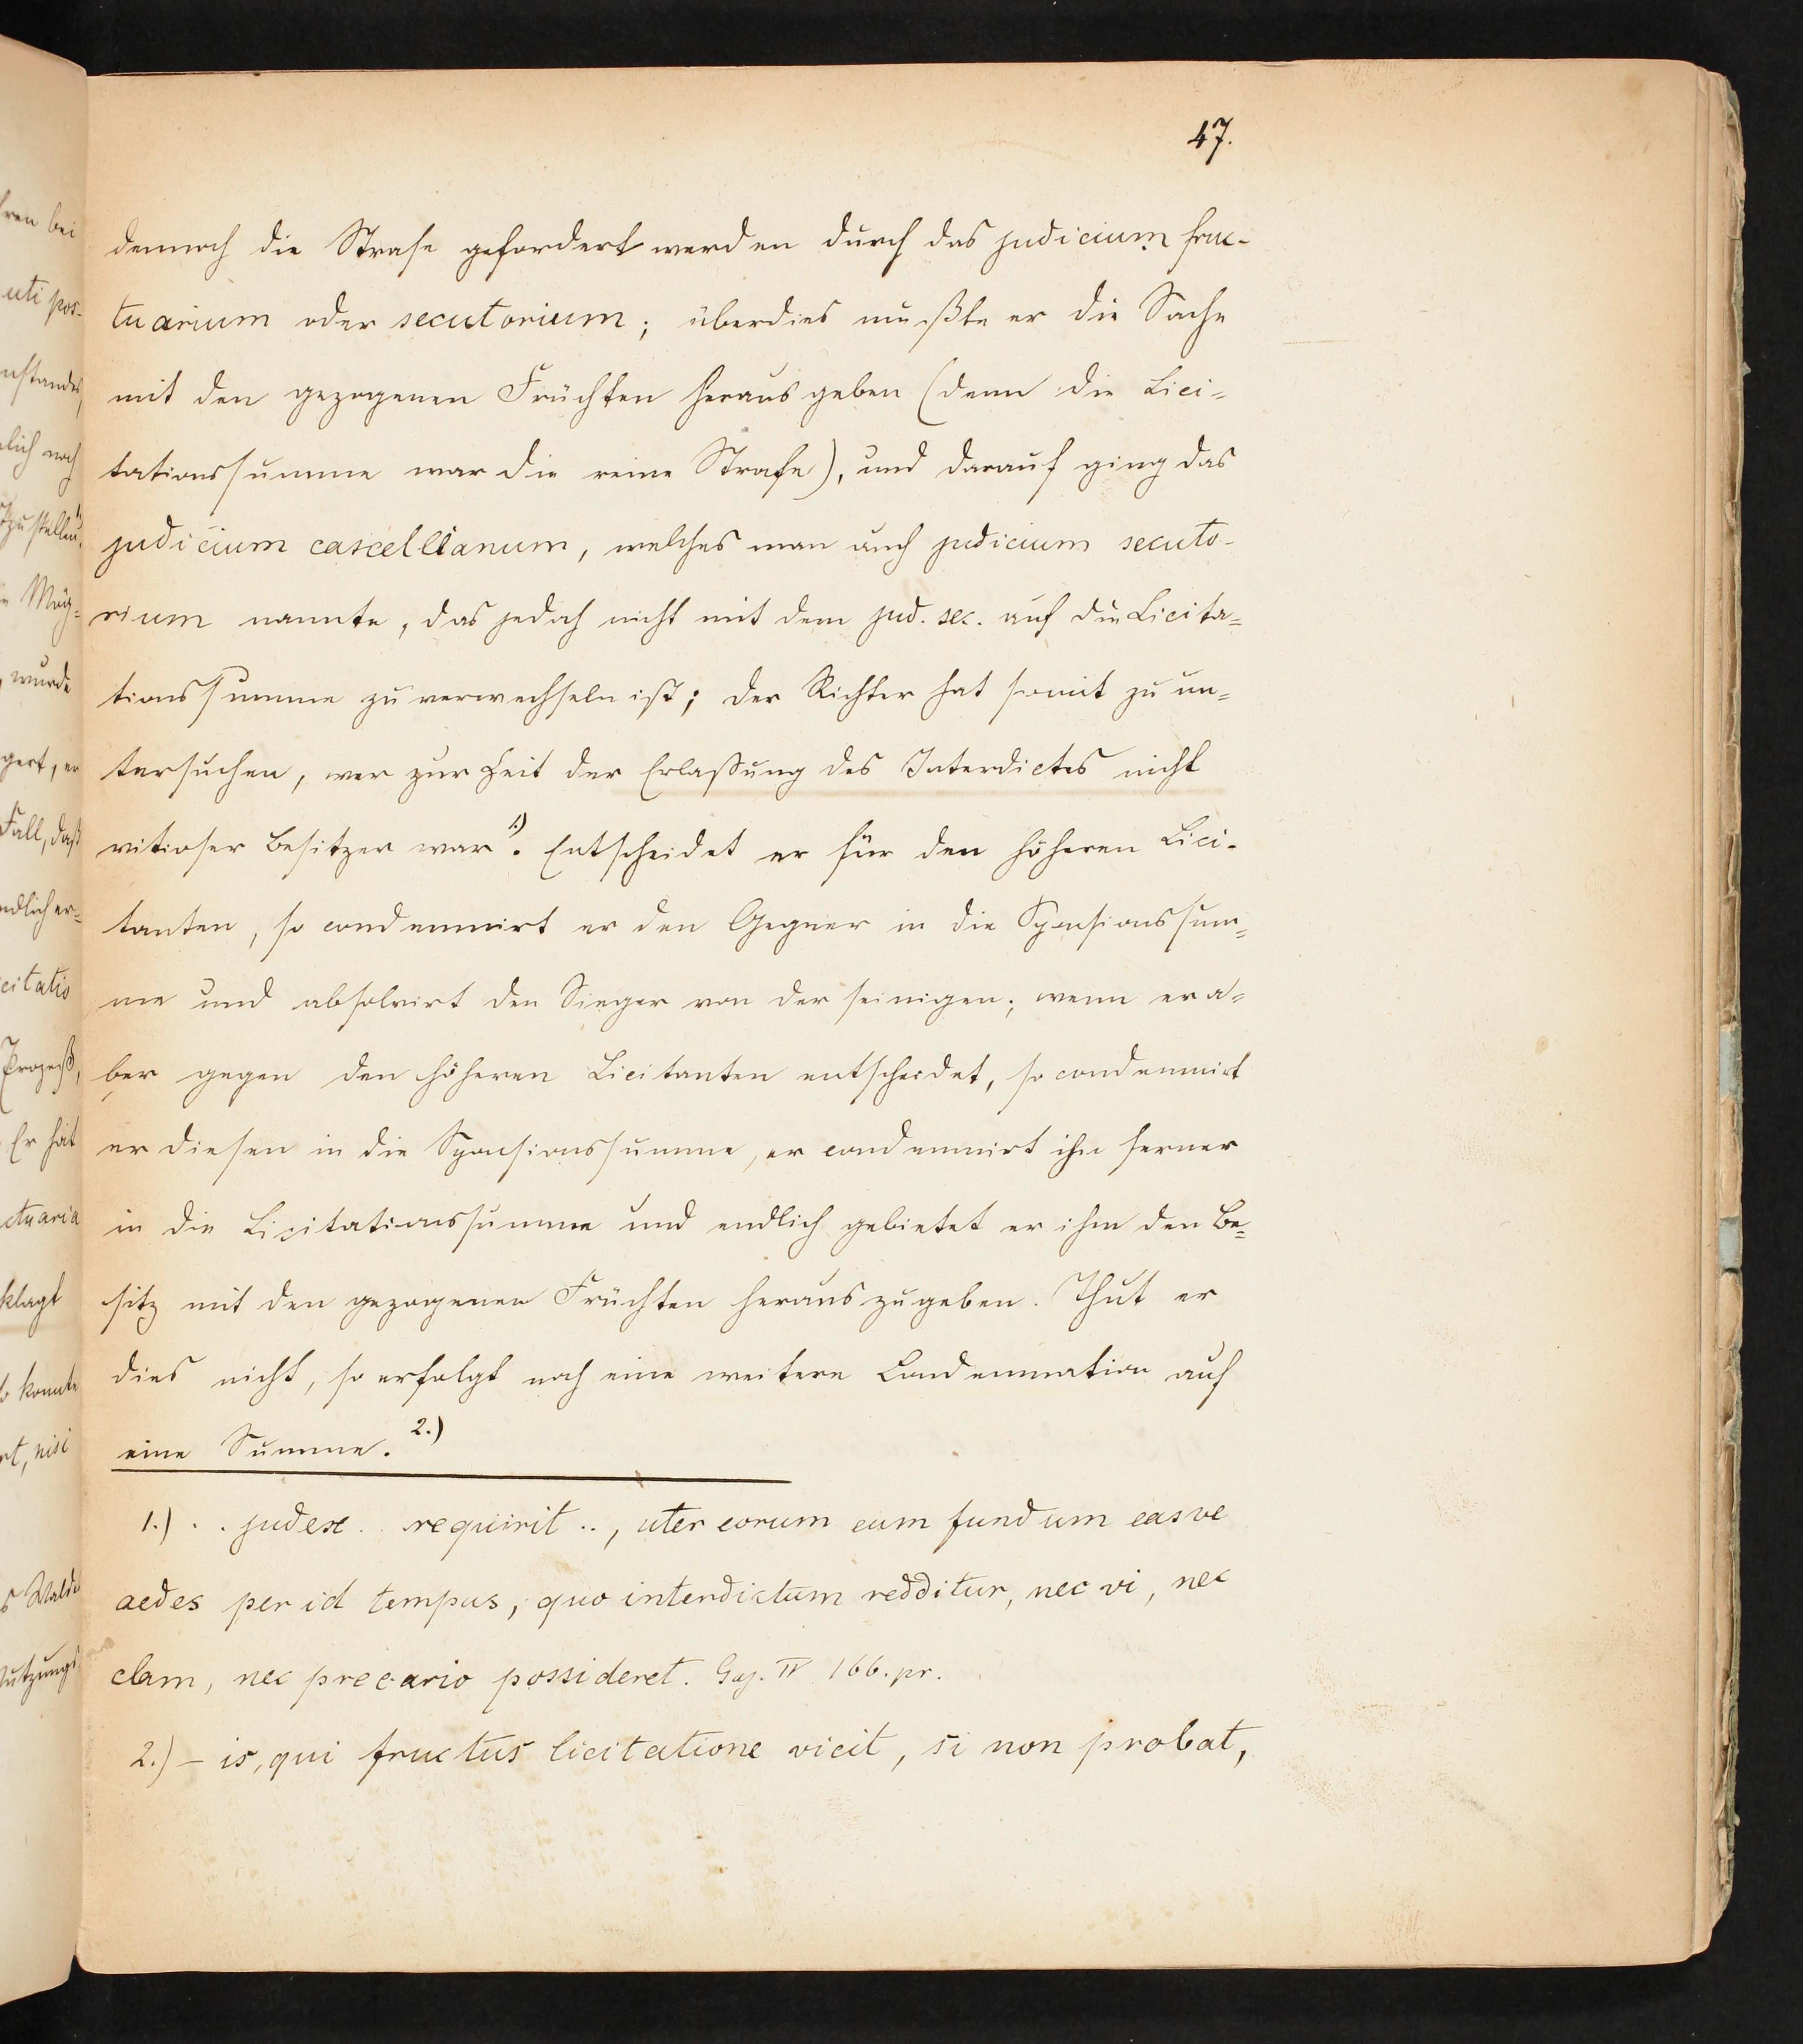 47.
dennoch die Strafe gefordert werden durch das judicium fruc-
tuarium oder secutorium; überdies mußte er die Sache
mit den gezogenen Früchten heraus geben (denn die Lici=
tationssumme war die reine Strafe), und darauf ging das
judicium cascellianum, welches man auch judicium secuto-
rium nannte, das jedoch nicht mit dem jud. sec. auf die Licita=
tionssumme zu verwechseln ist; der Richter hat somit zu un=
tersuchen, wer zur Zeit der Erlaßung des Interdictes nicht
vitioser Besitzer war 1.). Entscheidet er für den höheren Lici-
tanten, so condemnirt er den Gegner in die Sponsionssum=
me und absolvirt den Sieger von der seinigen; wenn er a=
ber gegen den höheren Licitanten entscheidet, so condemnirt
er diesen in die Sponsionssumme, er condemnirt ihn ferner
in die Licitationssumme und endlich gebietet er ihm den Be=
sitz mit den gezogenen Früchten herauszugeben. Thut er
dies nicht, so erfolgt noch eine weitere Condemnation auf
eine Summe. 2.)
1.) . . judex . . requirit . ., uter eorum eum fundum easve
aedes per id tempus, quo interdictum redditur, nec vi, nec
clam, nec precario possideret. Gaj. IV 166. pr.
2.) – is, qui fructus licitatione vicit, si non probat,